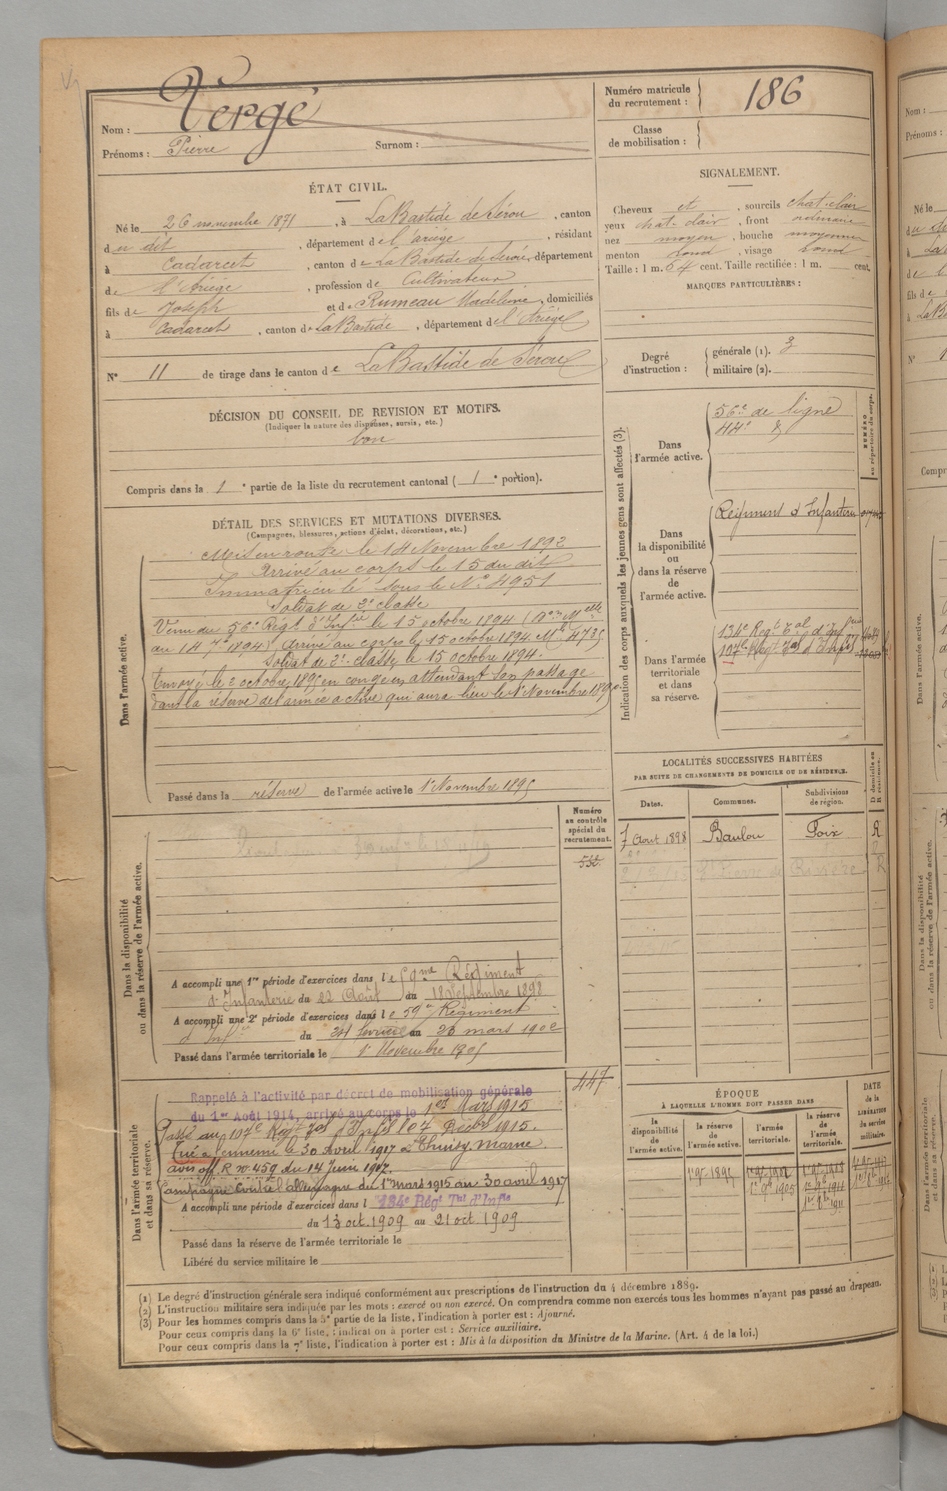 Vergé
Nom :
Prénoms : Pierre Surnom :
Numéro matricule du recrutement : 186
Classe de mobilisation :
ÉTAT CIVIL.
Né le 26 novembre 1871, à La Bastide de Sérou, canton
du dit, département de l'ariège, résidant
à Cadarcet, canton de La Bastide de Sérou, département
de l'Ariège, profession de Cultivateur
fils de Joseph et de Rumeau Madeleine, domiciliés
à Cadarcet, canton de La Bastide, département de l'Ariège
N° 11 de tirage dans le canton de La Bastide de Sérou
SIGNALEMENT.
Cheveux et, sourcils chat-clair
yeux chat-clair, front ordinaire
nez moyen, bouche moyenne
menton rond, visage rond
Taille : 1 m. 64 cent. Taille rectifiée : 1 m. cent.
MARQUES PARTICULIÈRES :
Degré d'instruction :
générale (1). 3
militaire (2).
DÉCISION DU CONSEIL DE REVISION ET MOTIFS.
(Indiquer la nature des dispenses, sursis, etc.)
bon
Compris dans la 1e partie de la liste du recrutement cantonal (1e portion).
DÉTAIL DES SERVICES ET MUTATIONS DIVERSES.
(Campagnes, blessures, actions d'éclat, décorations, etc.)
Dans l'armée active.
Mis en route le 14 Novembre 1892
Arrivé au corps le 15 du dit
Immatriculé sous le N° 4951
Soldat de 2e classe
Venu du 56e Régt d'Infie le 15 octobre 1894
au 14 7bre 1894) Arrivé au corps le 15 octobre 1894 Mle 4735
Soldat de 2e classe le 15 octobre 1894.
Envoyé le 2 octobre 1895 en congé en attendant son passage
dans la réserve de l'armée active qui aura lieu le 1er Novembre 1895
Passé dans la réserve de l'armée active le 1er Novembre 1895
Indication des corps auxquels les jeunes gens sont affectés (3).
NUMÉRO au répertoire du corps.
Dans l'armée active.
56e de ligne
44e
Dans la disponibilité ou dans la réserve de l'armée active.
Régiment d'Infanterie
Dans l'armée territoriale et dans sa réserve.
134e Regt Tal d'Inf
107e Regt Tal d'Infie
LOCALITÉS SUCCESSIVES HABITÉES
PAR SUITE DE CHANGEMENTS DE DOMICILE OU DE RÉSIDENCE.
Dates. Communes. Subdivisions de région. D domicile ou R résidence.
7 Aout 1898 Baulou Foix R
St Pierre de Rivière R
Dans la disponibilité ou dans la réserve de l'armée active.
Numéro au contrôle spécial du recrutement.
A accompli une 1re période d'exercices dans le 59me Régiment
d'Infanterie du 22 Août au 18 Septembre 1898
A accompli une 2e période d'exercices dans le 59e Régiment
d'Infie du 24 février au 23 mars 1902
Passé dans l'armée territoriale le 1er Novembre 1905
Dans l'armée territoriale et dans sa réserve.
447
Rappelé à l'activité par décret de mobilisation générale
du 1er Août 1914, arrivé au corps le 1er Mars 1915
Passé au 107e Regt Tal d'Infie le 07 Décbre 1915.
Tué à l'ennemi le 30 avril 1917 à Thuisy Marne
avis off. R n° 459 du 14 Juin 1917.
Campagne contre l'allemagne du 1er mars 1915 au 30 avril 1917
A accompli une période d'exercices dans l 134e Régt Tal d'Infie
du 13 oct. 1909 au 21 oct. 1909
Passé dans la réserve de l'armée territoriale le
Libéré du service militaire le
ÉPOQUE
À LAQUELLE L'HOMME DOIT PASSER DANS
la disponibilité de l'armée active. la réserve de l'armée active. l'armée territoriale. la réserve de l'armée territoriale.
DATE de la LIBÉRATION du service militaire.
(1) Le degré d'instruction générale sera indiqué conformément aux prescriptions de l'instruction du 4 décembre 1889.
(2) L'instruction militaire sera indiquée par les mots : exercé ou non exercé. On comprendra comme non exercés tous les hommes n'ayant pas passé au drapeau.
(3) Pour les hommes compris dans la 5e partie de la liste, l'indication à porter est : Ajourné.
Pour ceux compris dans la 6e liste, l'indication à porter est : Service auxiliaire.
Pour ceux compris dans la 7e liste, l'indication à porter est : Mis à la disposition du Ministre de la Marine. (Art. 4 de la loi.)